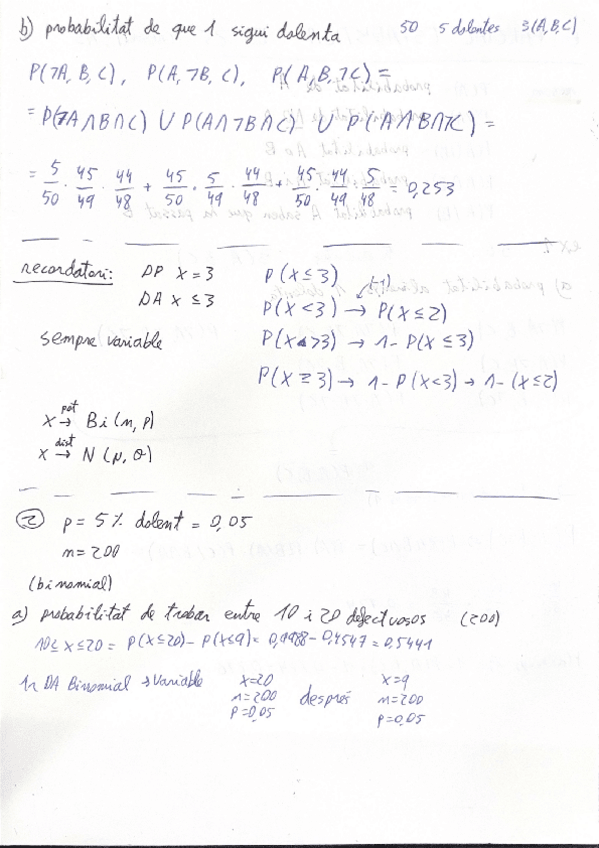 b) probabilitat de que 1 sigui dolenta 50 5 dolentes 3(A,B,C)
P(¬A, B, C), P(A, ¬B, C), P(A, B, ¬C) =
= P(¬A∩B∩C) ∪ P(A∩¬B∩C) ∪ P(A∩B∩¬C) =
= 5/50 · 45/49 · 44/48 + 45/50 · 5/49 · 44/48 + 45/50 · 44/49 · 5/48 = 0,253
recordatori: DP X=3 P(X≤3)
DA X≤3 P(X<3) →(-1) P(X≤2)
sempre variable P(X>3) → 1-P(X≤3)
P(X≥3) → 1-P(X<3) → 1-(X≤2)
X →pot Bi(n,p)
X →dist N(μ,σ)
② p = 5% dolent = 0,05
n=200
(binomial)
a) probabilitat de trobar entre 10 i 20 defectuosos (200)
10≤X≤20 = P(X≤20) - P(X≤9) = 0,9988 - 0,4547 = 0,5441
1r DA Binomial → Variable X=20 després X=9
n=200 n=200
P=0,05 p=0,05